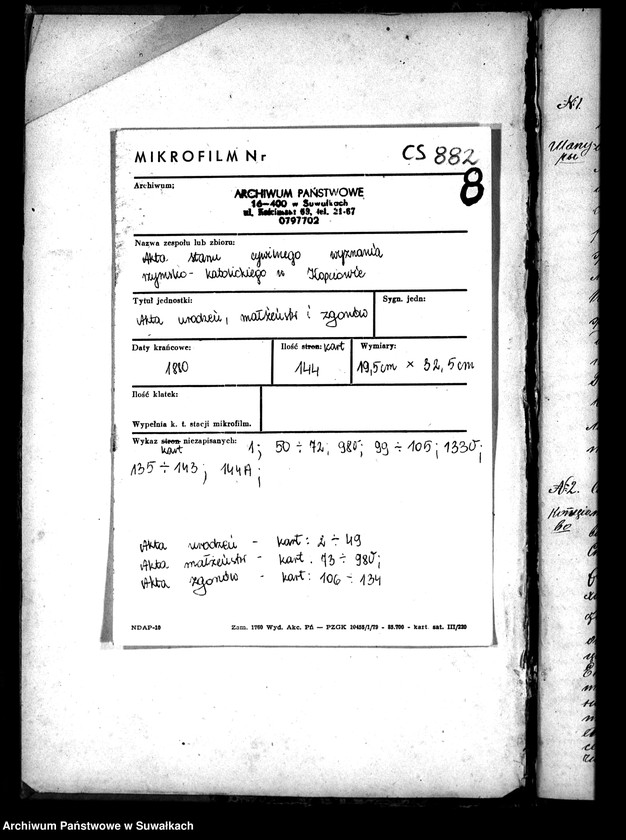 MIKROFILM Nr CS 882
8
Archiwum;
ARCHIWUM PAŃSTWOWE
16-400 w Suwałkach
ul. Kościuszki 69, tel. 21-67
0797702
Nazwa zespołu lub zbioru:
Akta stanu cywilnego wyznania
rzymsko-katolickiego w Kopciowie
Tytuł jednostki:
Sygn. jedn:
Akta urodzeń, małżeństw i zgonów
Daty krańcowe:
Ilość stron: kart
Wymiary:
144
19,5cm × 32,5cm
Ilość klatek:
Wypełnia k. t. stacji mikrofilm.
Wykaz stron niezapisanych:
kart 1; 50 ÷ 72; 98v; 99 ÷ 105; 133v;
135 ÷ 143; 144A;
Akta urodzeń - kart: 2 ÷ 49
Akta małżeństw - kart. 73 ÷ 98v;
Akta zgonów - kart: 106 ÷ 134
NDAP-10
Zam. 1760 Wyd. Akc. Pń — PZGK
kart. sat. III/220
№1.
№2.
Archiwum Państwowe w Suwałkach